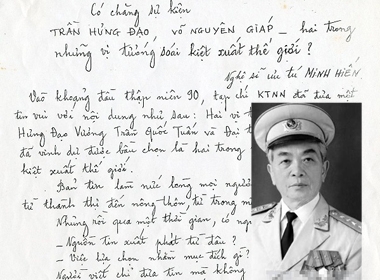 Có chăng sự kiên
TRẦN HƯNG ĐẠO, VÕ NGUYÊN GIÁP – hai trong
những vị tướng soái kiệt xuất thế giới ?
Nghệ sĩ ưu tú MINH HIỀN
Vào khoảng đầu thập niên 90, tạp chí KTNN đã đưa một
tin vui với nội dung như sau: Hai vị t
Hưng Đạo Vương Trần Quốc Tuấn và Đại t
đã vinh dự được bầu chọn là hai trong
kiệt xuất thế giới.
Bản tin làm nức lòng mọi người
từ thành thị đến nông thôn, từ trong n
Nhưng rồi qua một thời gian, có ng
– Nguồn tin xuất phát từ đâu ?
– Việc lựa chọn nhằm mục đích gì ?
Người viết chỉ đưa tin mà không